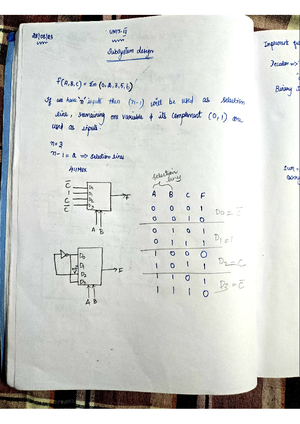 28/08/23
UNIT-II
Subsystem design
f(A,B,C) = Σm (0,2,3,5,6)
If we have 'n' inputs then (n-1) will be used as selection
line, remaining one variable & its complement (0,1) are
used as inputs.
n=3
n-1 = 2 => selection lines
4:1 MUX
Selection lines
A B C F
0 0 0 1
0 0 1 0
D0 = C̅
0 1 0 1
0 1 1 1
D1 = 1
1 0 0 0
1 0 1 1
D2 = C
1 1 0 1
1 1 1 0
D3 = C̅
C̅ D0
1 D1
C D2
C̅ D3
F
A B
D0
D1
D2
D3
F
A B
Implement
Iteration =>
Binary